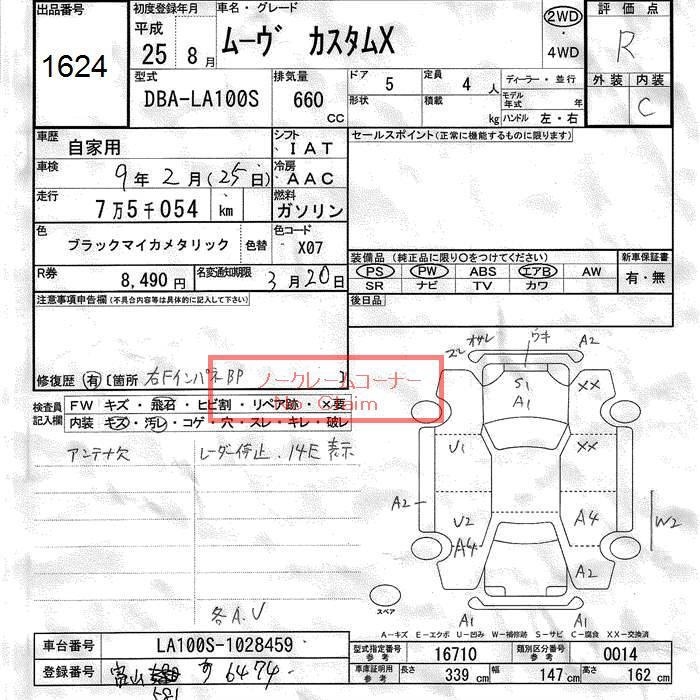 出品番号 初度登録年月 車名・グレード 2WD 評価点
1624 平成 25 8月 ムーヴ カスタムX ・ 4WD R
型式 排気量 ドア 5 定員 4人 ディーラー・並行 外装 内装
DBA-LA100S 660 CC 形状 積載 kg モデル年式 年 ハンドル 左・右 C
車歴 自家用 シフト IAT セールスポイント(正常に機能するものに限ります)
車検 9年2月(25日) 冷房 AAC
走行 7万5千054 km 燃料 ガソリン
色 ブラックマイカメタリック 色替 色コード X07
装備品(純正品に限り○をつけてください) 新車保証書
PS PW ABS エアB AW 有・無
SR ナビ TV カワ
R券 8,490円 名変通知期限 3月20日 後日品
注意事項申告欄(不具合内容等は具体的に記入して下さい)
修復歴(有)〔箇所 右Fインパネ BP 〕
ノークレームコーナー
No Claim
検査員記入欄 FW キズ・飛石・ヒビ割・リペア跡・×要
内装 キズ・汚レ・コゲ・穴・スレ・キレ・破レ
アンテナ欠 レーダー停止.14E 表示
各A.U
ウキ A2
S1 A1 XX
U1 XX
A2 U2 A4 W2
A4 A2
スペア A1 A1
A-キズ E-エクボ U-凹み W-補修跡 S-サビ C-腐食 XX-交換済
車台番号 LA100S-1028459 型式指定番号 参考 16710 類別区分番号 参考 0014
登録番号 富山 581 6474 車庫証明用 参考 長さ 339 cm 幅 147 cm 高さ 162 cm